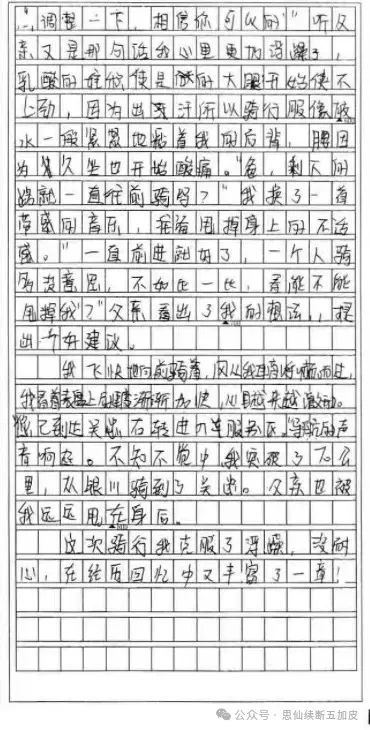 ，调整一下，相信你可以的”听父
亲又是那句话我心里更加浮躁了，
乳酸的堆积使是的大腿开始使不
上劲，因为出汗所以骑行服像被
水一般紧紧地粘着我的后背，腰因
为久坐也开始酸痛。“爸，剩下的
路就一直往前骑吗？”我换了一首
带感的音乐，看着甩掉身上的不适
感。“一直前进就好了，一个人骑
多没意思，不如比一比，看能不能
甩掉我？”父亲看出了我的想法，提
出一个好建议。
我飞快地向前骑着，风从我耳旁呼啸而过，
我看着表盘上的速度渐渐加快，心越来越激动。
“您已到达关 右转进入 服务区。”导航的声
音响起。不知不觉中我突破了70公
里，从银川骑到了关 。父亲也被
我远远甩在身后。
这次骑行我克服了浮躁，没耐
心，在经历回忆中又丰富了一章！
公众号·思仙续断五加皮